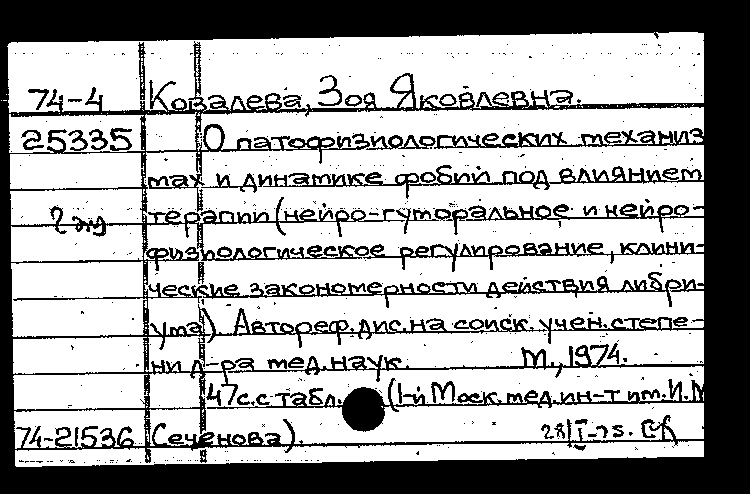 74-4 Ковалева, Зоя Яковлевна.
25335 О патофизиологических механиз
мах и динамике фобий под влиянием
2 экз. терапии (нейро-гуморальное и нейро-
физиологическое регулирование, клини-
ческие закономерности действия либри-
ума). Автореф. дис. на соиск. учен. степе-
ни д-ра мед. наук. М., 1974.
47 с. с табл. (1-й Моск. мед. ин-т им. И.М
74-21536 Сеченова).
28/I-75.